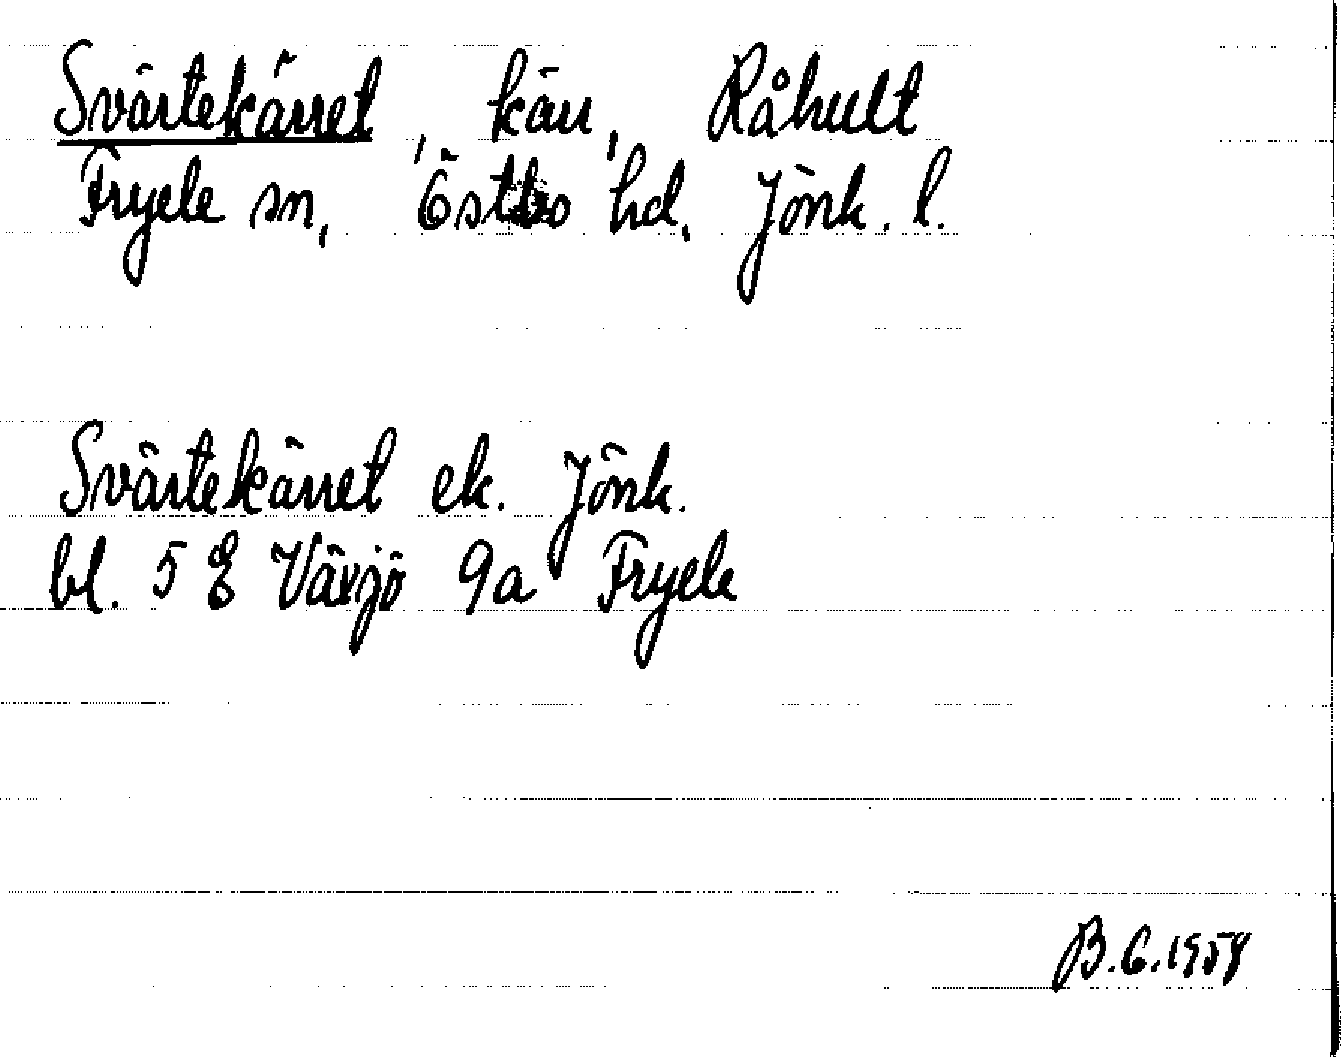 Svärtekärret, kärr, Råhult
Fryele sn, Östbo hd, Jönk. l.
Svärtekärret ek. Jönk.
bl. 5 E Växjö 9a Fryele
B.G.1958